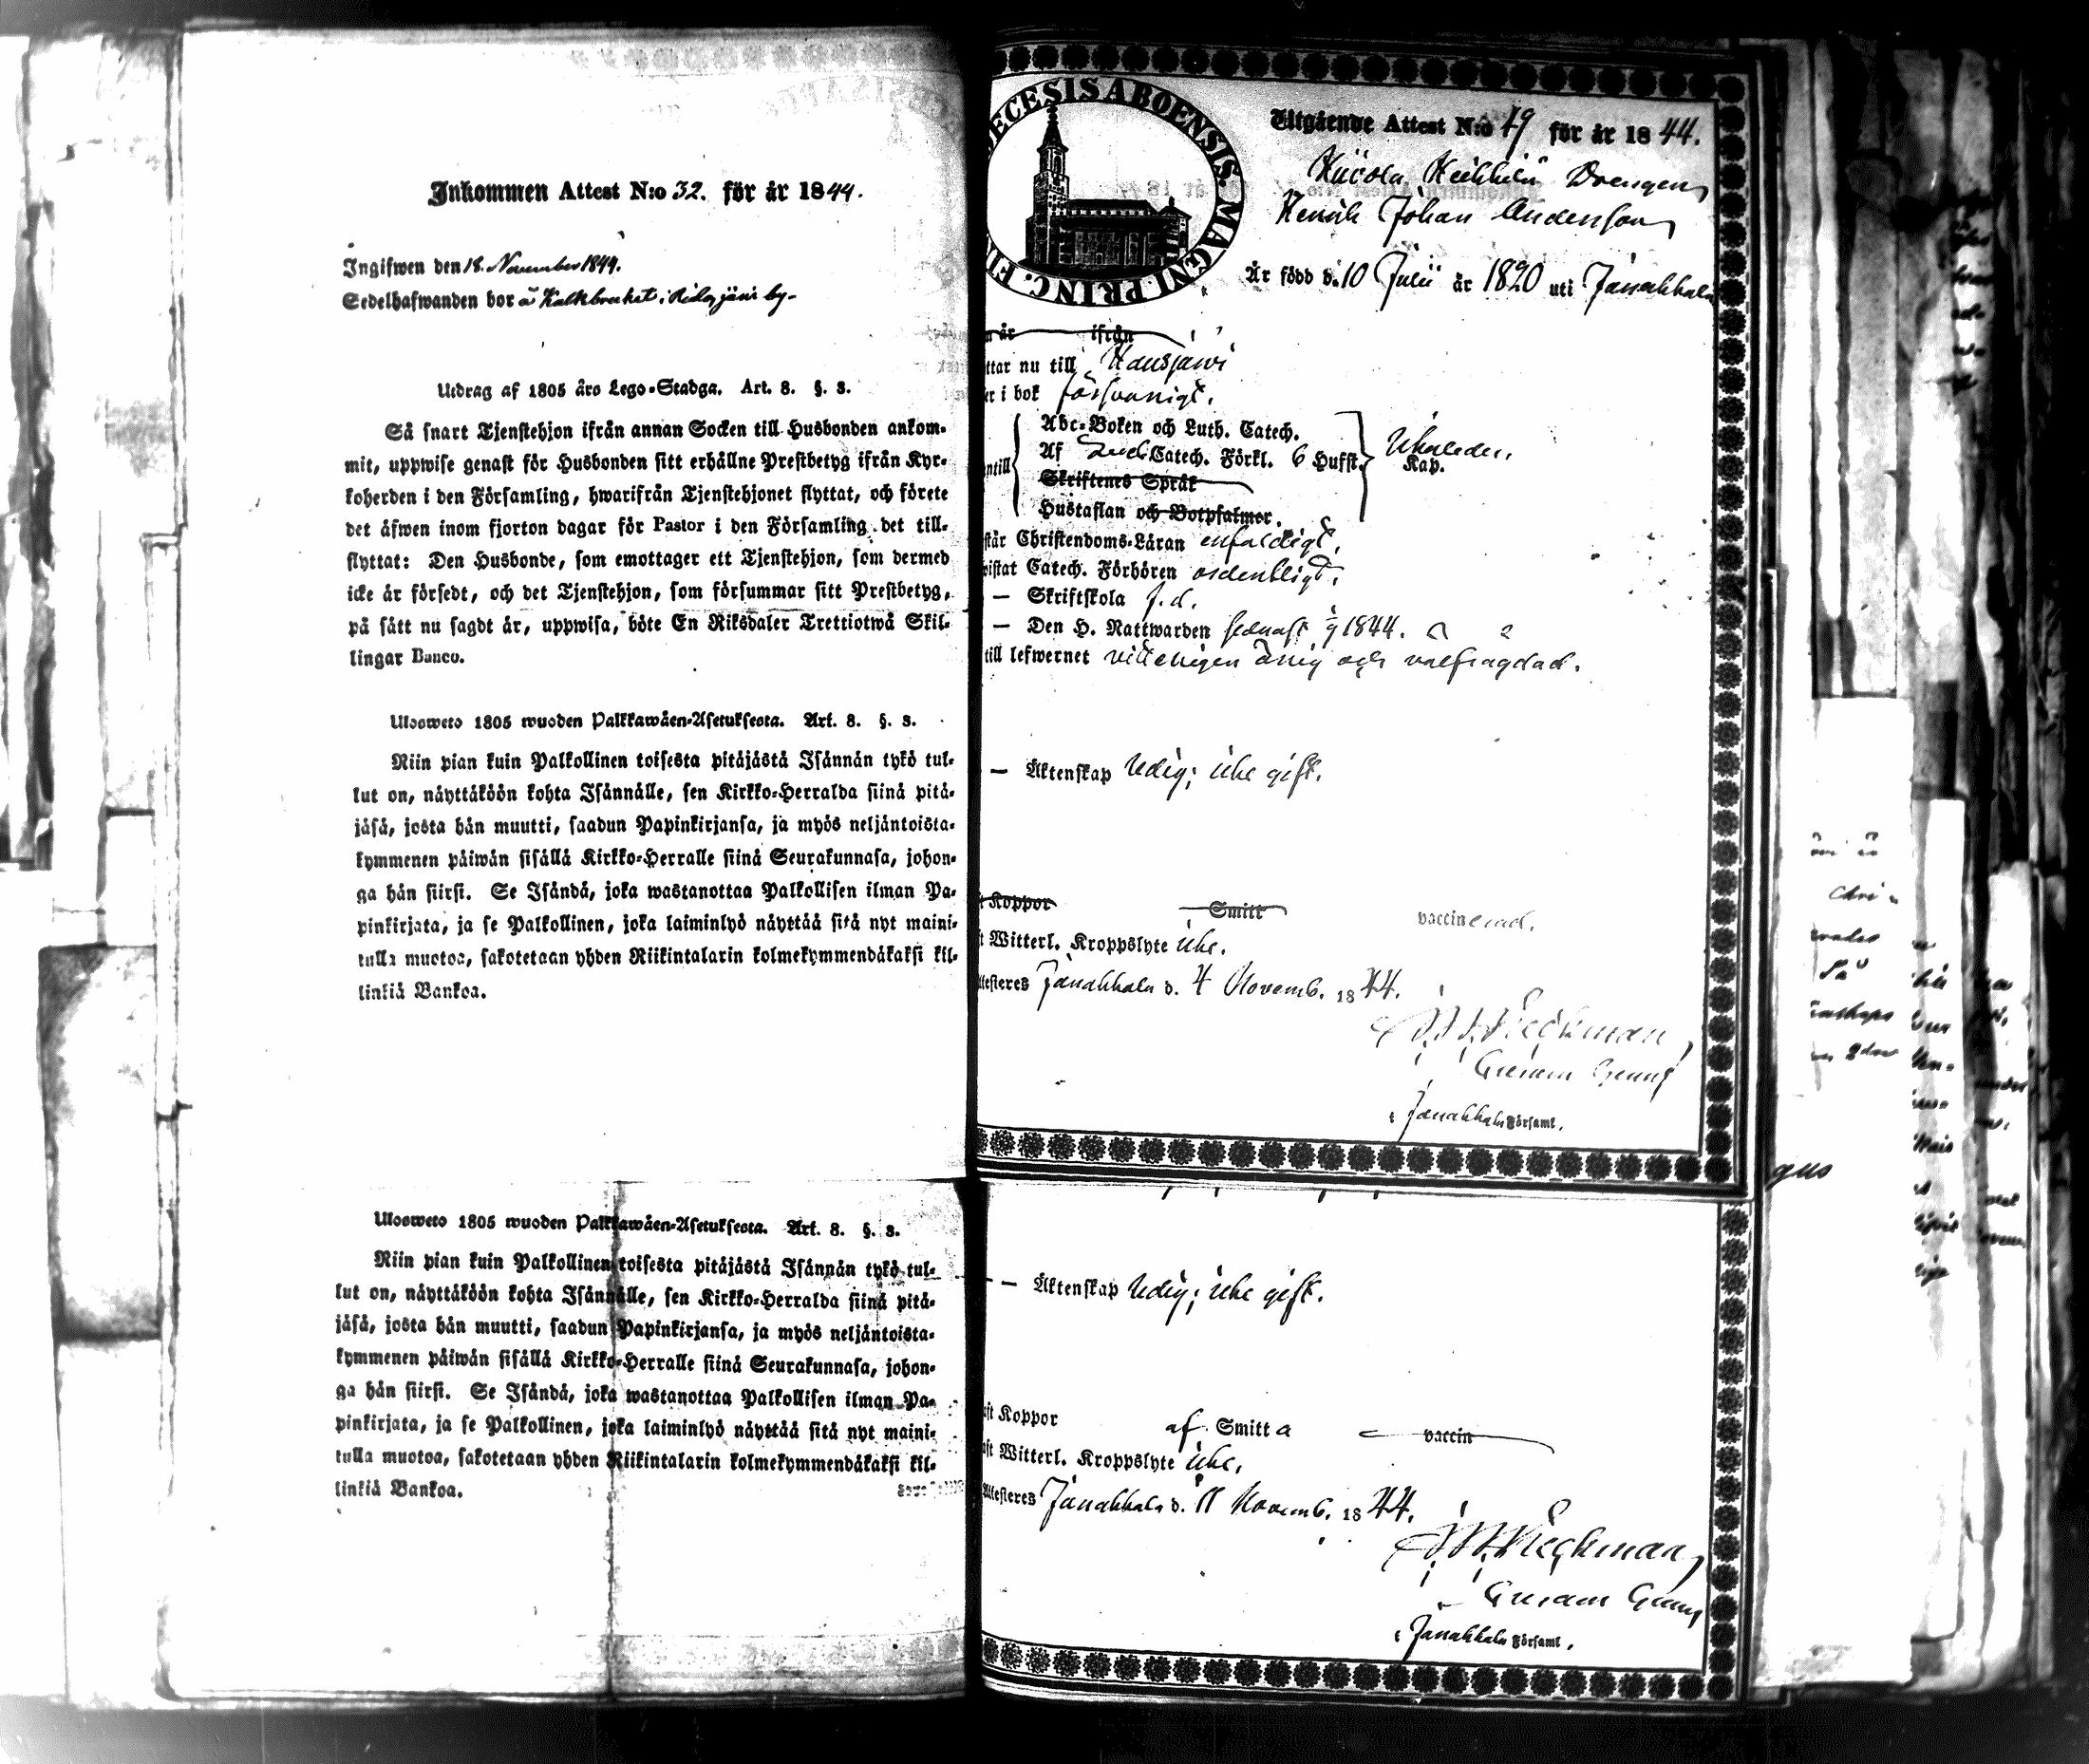 Inkommen Attest N:o 32. för år 1844.
Ingifwen den 18. November 1844.
Sedelhafwanden bor å Kalkbrucket i Ridasjärvi by-
Utdrag af 1805 års Lego-Stadga. Art. 8. §. 3.
Så snart Tjenstehjon ifrån annan Socken till Husbonden ankom-
mit, uppwise genast för Husbonden sitt erhållne Prestbetyg ifrån Kyr-
koherden i den Församling, hwarifrån Tjenstehjonet flyttat, och förete
det äfwen inom fjorton dagar för Pastor i den Församling det till-
flyttat: Den Husbonde, som emottager ett Tjenstehjon, som dermed
icke är försedt, och det Tjenstehjon, som försummar sitt Prestbetyg,
på sätt nu sagdt är, uppwisa, böte En Riksdaler Trettiotwå Skil-
lingar Banco.
Ulosweto 1805 wuoden Palkkawäen-Asetuksesta. Art. 8. §. 3.
Niin pian kuin Palkollinen toisesta pitäjästä Isännän tykö tul-
lut on, näyttäköön kohta Isännälle, sen Kirkko-Herralda siinä pitä-
jäsä, josta hän muutti, saadun Papinkirjansa, ja myös neljäntoista-
kymmenen päiwän sisällä Kirkko-Herralle siinä Seurakunnasa, johon-
ga hän siirsi. Se Isändä, joka wastanottaa Palkollisen ilman Pa-
pinkirjata, ja se Palkollinen, joka laiminlyö näyttää sitä nyt maini-
tulla muotoa, sakotetaan yhden Riikintalarin kolmekymmendäkaksi kil-
linkiä Bankoa.
Ulosweto 1805 wuoden Palkkawäen-Asetuksesta. Art. 8. §. 3.
Niin pian kuin Palkollinen toisesta pitäjästä Isännän tykö tul-
lut on, näyttäköön kohta Isännälle, sen Kirkko-Herralda siinä pitä-
jäsä, josta hän muutti, saadun Papinkirjansa, ja myös neljäntoista-
kymmenen päiwän sisällä Kirkko-Herralle siinä Seurakunnasa, johon-
ga hän siirsi. Se Isändä, joka wastanottaa Palkollisen ilman Pa-
pinkirjata, ja se Palkollinen, joka laiminlyö näyttää sitä nyt maini-
tulla muotoa, sakotetaan yhden Riikintalarin kolmekymmendäkaksi kil-
linkiä Bankoa.
ECESIS ABOENSIS. MAGNI. PRINC. FI
Utgående Attest N:o 49 för år 1844.
Drengen
Henrik Johan Andersson
Är född d. 10 Julii år 1820 uti Janakkala
n år ifrån
ttar nu till Hausjärvi
er i bok försvarligt.
Abc-Boken och Luth. Catech.
ntill Af Catech. Förkl. 6 Hufst. Kap. Utanleder.
Skriftenes Språk
Hustaflan och Botpsalmer.
står Christendoms-Läran enfaldigt.
vistat Catech. Förhören ordentligt.
— Skriftskola f. d.
— Den H. Nattwarden sednast 1844.
till lefwernet ärlig och välfrägdad.
— Äktenskap ledig; icke gift.
t Koppor Smitt vaccinerad.
t Witterl. Kroppslyte icke.
ttesteres Janakkala d. 4 Novemb. 1844.
i Janakkala Församl.
— Äktenskap ledig; icke gift.
ft Koppor af Smitta vaccin
ft Witterl. Kroppslyte icke.
Attesteres Janakkala d. 11 Novemb. 1844.
i Janakkala Församl.